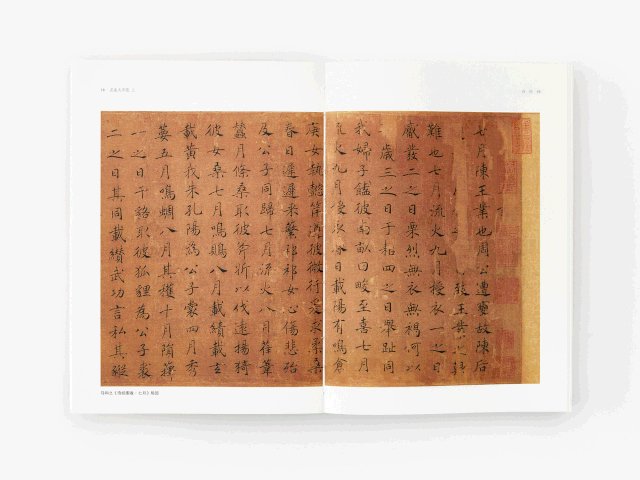 七月陳王業也周公遭變故陳后
致王業之艱
難也七月流火九月授衣一之日
觱發二之日栗烈無衣無褐何以
歲三之日于耜四之日舉趾同
我婦子饁彼南畝田畯至喜七月
流火九月授衣春日載陽有鳴倉
庚女執懿筐遵彼微行爰求柔桑
春日遲遲采蘩祁祁女心傷悲殆
及公子同歸七月流火八月萑葦
蠶月條桑取彼斧斨以伐遠揚猗
彼女桑七月鳴鵙八月載績載玄
載黃我朱孔陽為公子裳四月秀
葽五月鳴蜩八月其穫十月隕蘀
一之日于貉取彼狐貍為公子裘
二之日其同載纘武功言私其豵